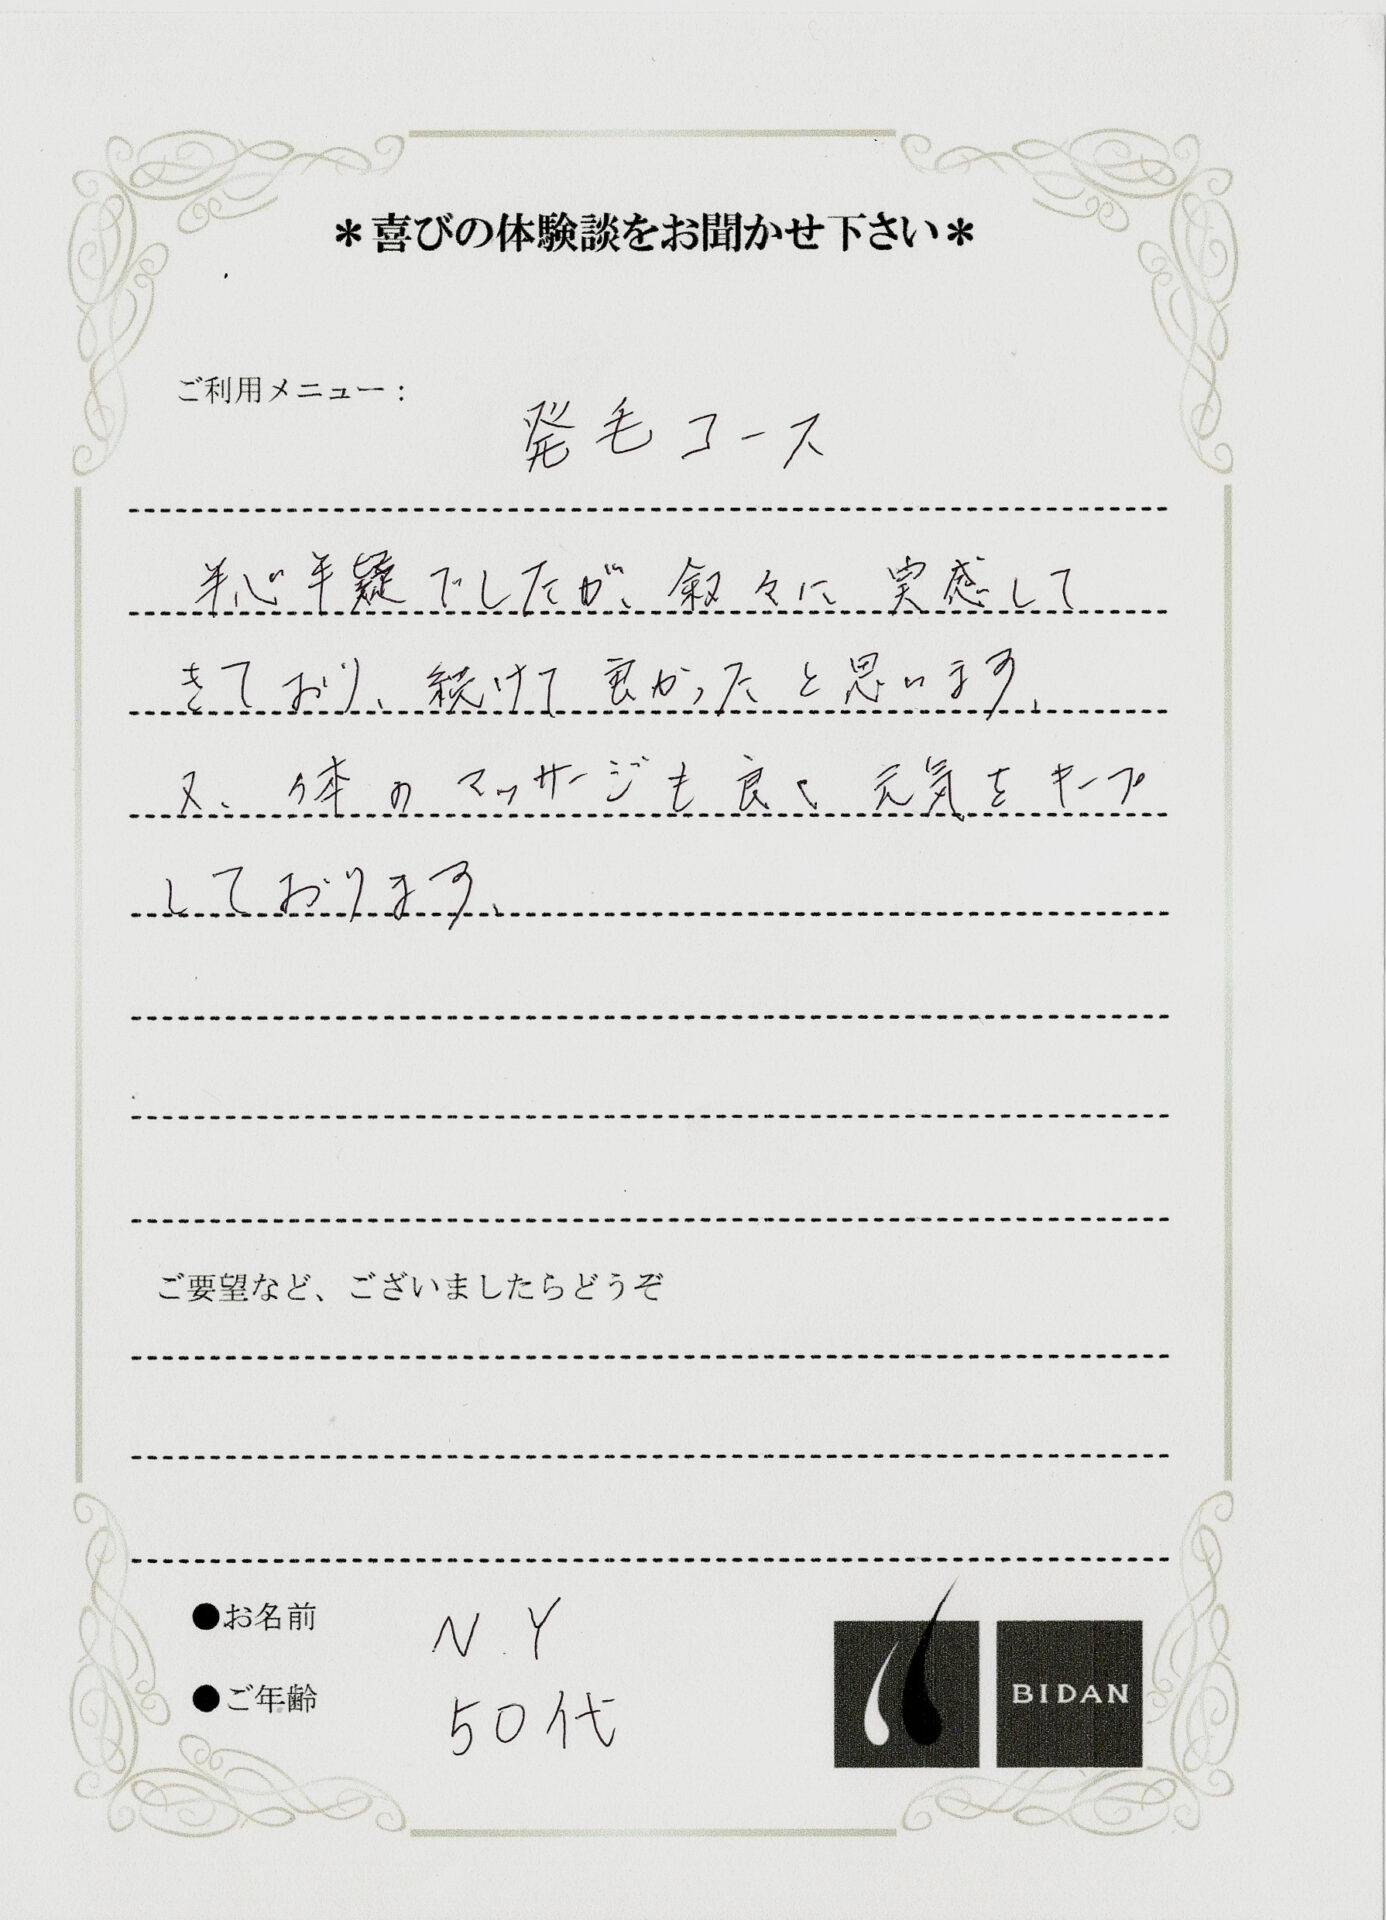 ＊喜びの体験談をお聞かせ下さい＊
ご利用メニュー：
発毛コース
半心半疑でしたが、叙々に実感して
きており、続けて良かったと思います、
又、体のマッサージも良く元気をキープ
しております、
ご要望など、ございましたらどうぞ
●お名前 N.Y
●ご年齢 50代
BIDAN